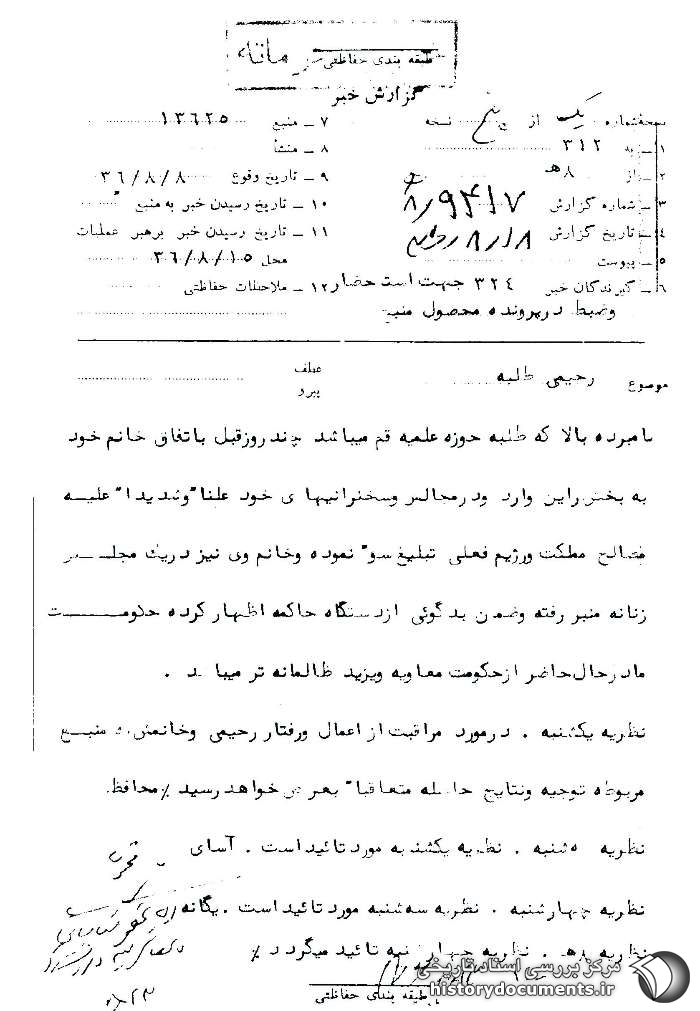 طبقه بندی حفاظتی
گزارش خبر
صفحه شماره یک از پنج نسخه
۱ـ به ۳۱۲
۲ـ از ۸ هـ
۳ـ شماره گزارش
۴ـ تاریخ گزارش
۵ـ پیوست
۶ـ گیرندگان خبر ۳۲۴ جهت استحضار
وضبط درپرونده محصول منبع
۷ـ منبع ۱۳۶۲۵
۸ـ منشأ
۹ـ تاریخ وقوع ۳۶/۸/۸
۱۰ـ تاریخ رسیدن خبر به منبع
۱۱ـ تاریخ رسیدن خبر برهبر عملیات
محل ۳۶/۸/۱۵
۱۲ـ ملاحظات حفاظتی
موضوع رحیمی طلبه
عطف
پیرو
نامبرده بالا که طلبه حوزه علمیه قم میباشد چند روز قبل باتفاق خانم خود
به بخش راین وارد ودرمجالس وسخنرانیهای خود علنا" وشدیدا" علیه
مصالح مملکت ورژیم فعلی تبلیغ سو" نموده وخانم وی نیز دریک مجلس
زنانه منبر رفته وضمن بدگوئی ازدستگاه حاکمه اظهارکرده حکومت
مادرحال حاضر ازحکومت معاویه ویزید ظالمانه تر میباشد .
نظریه یکشنبه . درمورد مراقبت از اعمال ورفتار رحیمی وخانمش به منبع
مربوطه توجیه ونتایج حاصله متعاقبا" بعرض خواهد رسید٪ محافظ.
نظریه سه شنبه . نظریه یکشنبه مورد تائید است . آسای
نظریه چهارشنبه . نظریه سه شنبه مورد تائید است . یگانه
نظریه ۸هـ . نظریه چهارشنبه تائید میگردد ٪
طبقه بندی حفاظتی
مرکز بررسی اسناد تاریخی
historydocuments.ir